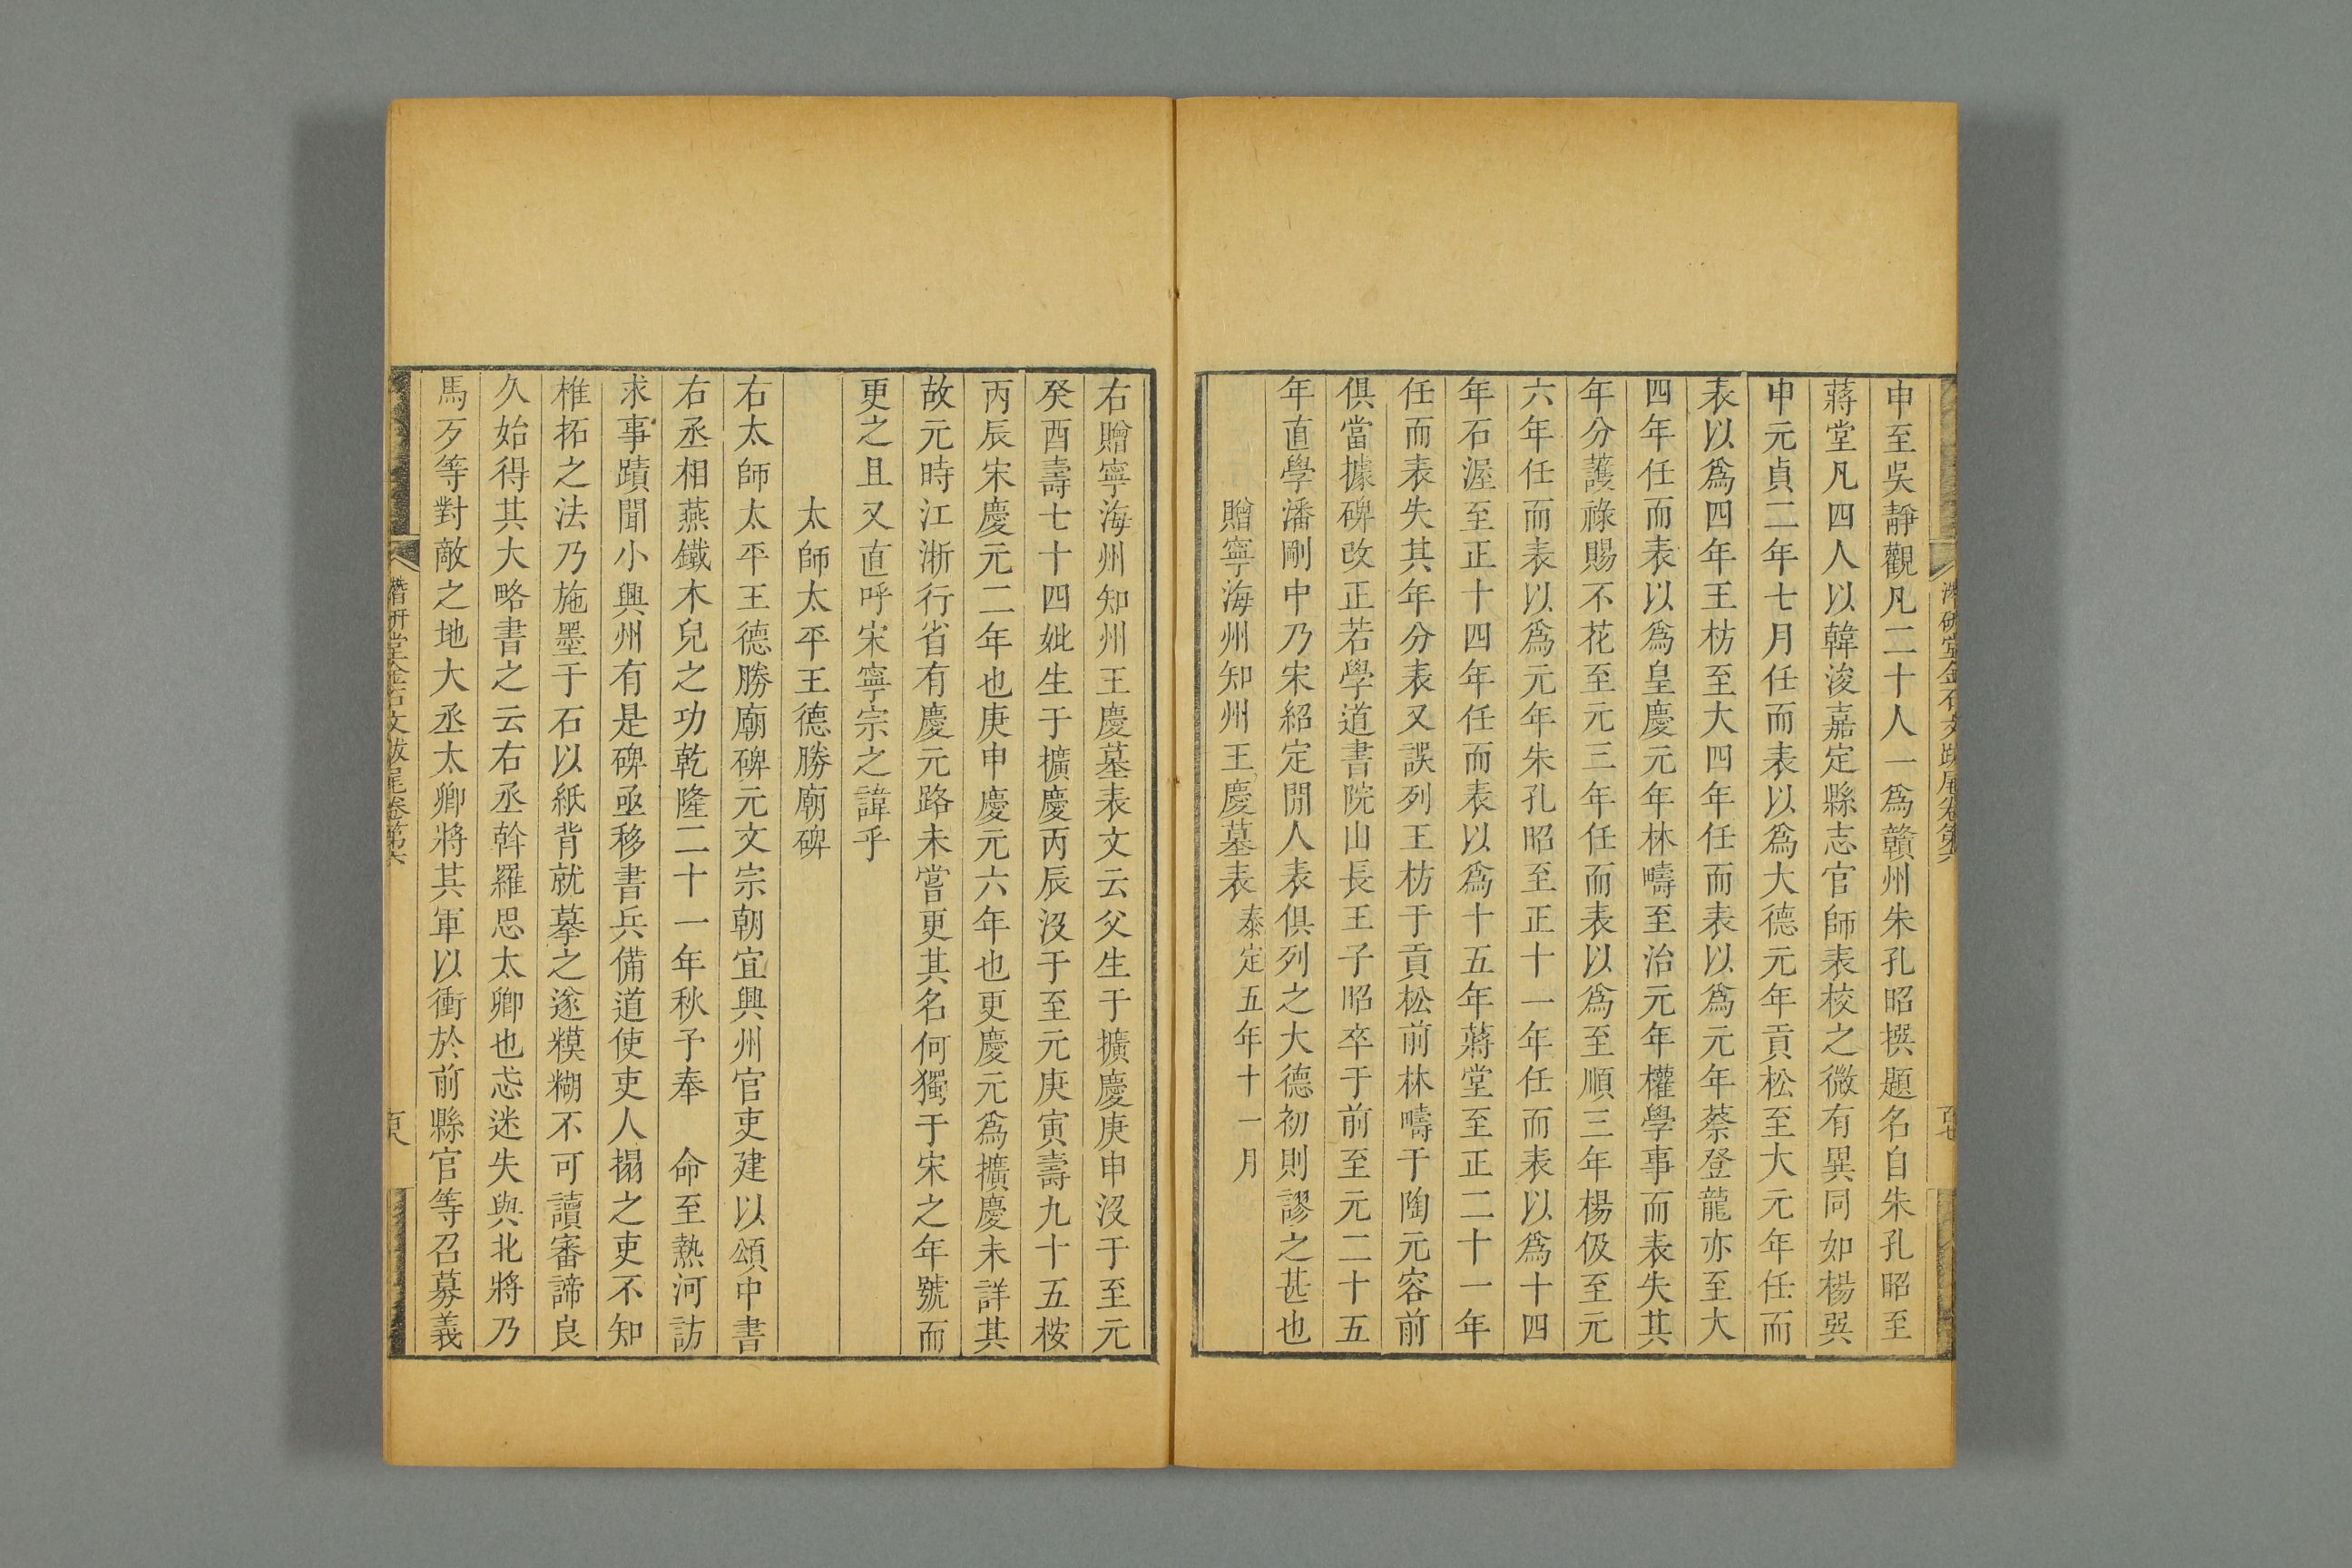 潛研堂金石文跋尾卷第六
申至吳靜觀凡二十人一爲贛州朱孔昭撰題名自朱孔昭至
蔣堂凡四人以韓浚嘉定縣志官師表校之微有異同如楊巽
申元貞二年七月任而表以爲大德元年貢松至大元年任而
表以爲四年王枋至大四年任而表以爲元年蔡登龍亦至大
四年任而表以爲皇慶元年林疇至治元年權學事而表失其
年分護祿賜不花至元三年任而表以爲至順三年楊伋至元
六年任而表以爲元年朱孔昭至正十一年任而表以爲十四
年石渥至正十四年任而表以爲十五年蔣堂至正二十一年
任而表失其年分表又誤列王枋于貢松前林疇于陶元容前
俱當據碑改正若學道書院山長王子昭卒于前至元二十五
年直學潘剛中乃宋紹定閒人表俱列之大德初則謬之甚也
贈寧海州知州王慶墓表 泰定五年十一月
右贈寧海州知州王慶墓表文云父生于擴慶庚申沒于至元
癸酉壽七十四妣生于擴慶丙辰沒于至元庚寅壽九十五桉
丙辰宋慶元二年也庚申慶元六年也更慶元爲擴慶未詳其
故元時江浙行省有慶元路未嘗更其名何獨于宋之年號而
更之且又直呼宋寧宗之諱乎
太師太平王德勝廟碑
右太師太平王德勝廟碑元文宗朝宜興州官吏建以頌中書
右丞相燕鐵木兒之功乾隆二十一年秋予奉　命至熱河訪
求事蹟聞小興州有是碑亟移書兵備道使吏人搨之吏不知
椎拓之法乃施墨于石以紙背就摹之遂糢糊不可讀審諦良
久始得其大略書之云右丞斡羅思太卿也忒迷失與北將乃
馬歹等對敵之地大丞太卿將其軍以衝於前縣官等召募義
潛研堂金石文跋尾卷第六